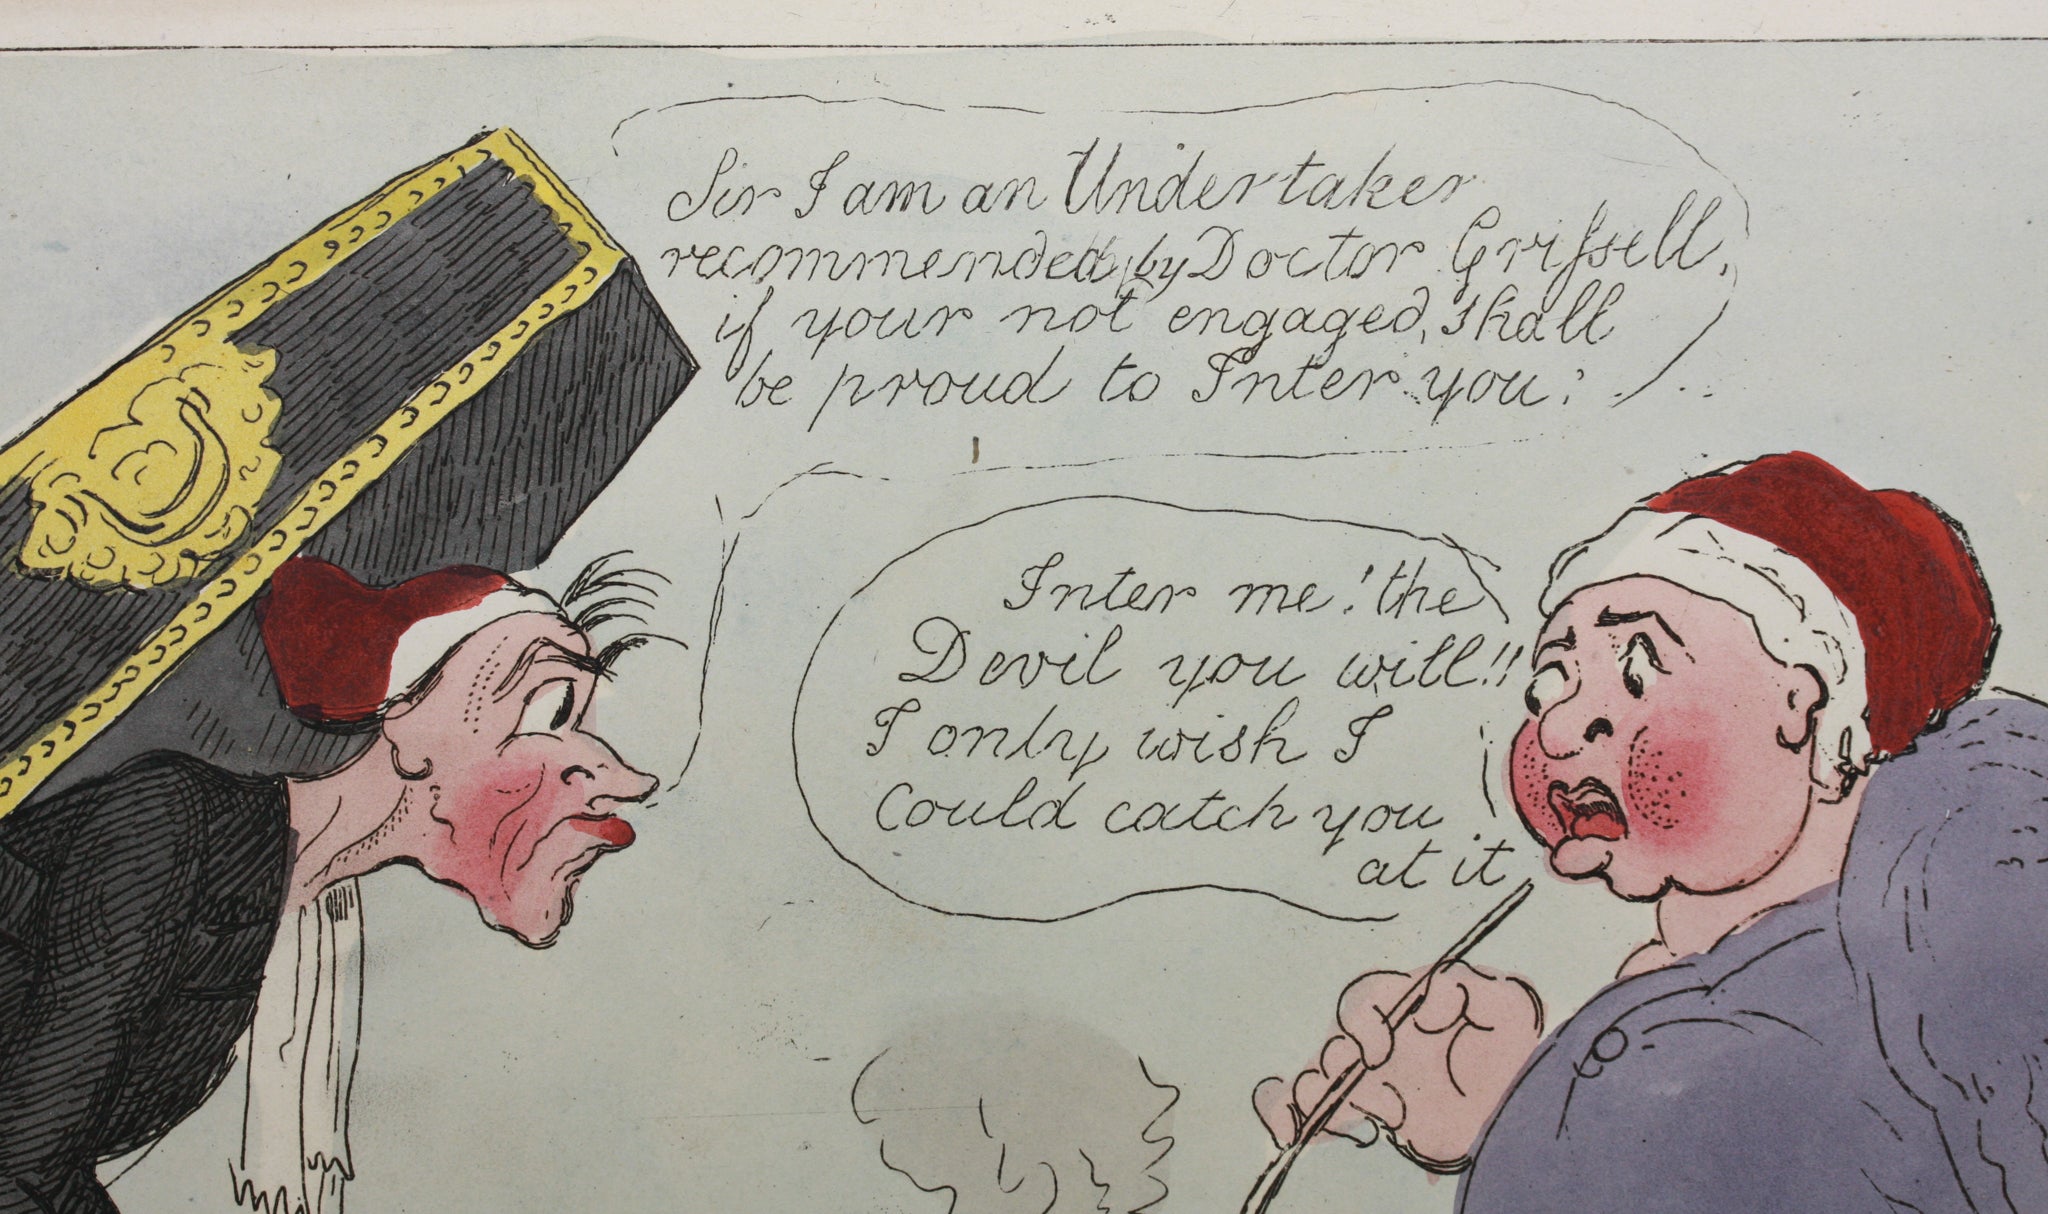 Sir I am an Undertaker
recommended by Doctor Griſsell,
if your not engaged, shall
be proud to Inter you:
Inter me! the
Devil you will!!
I only wish I
Could catch you
at it